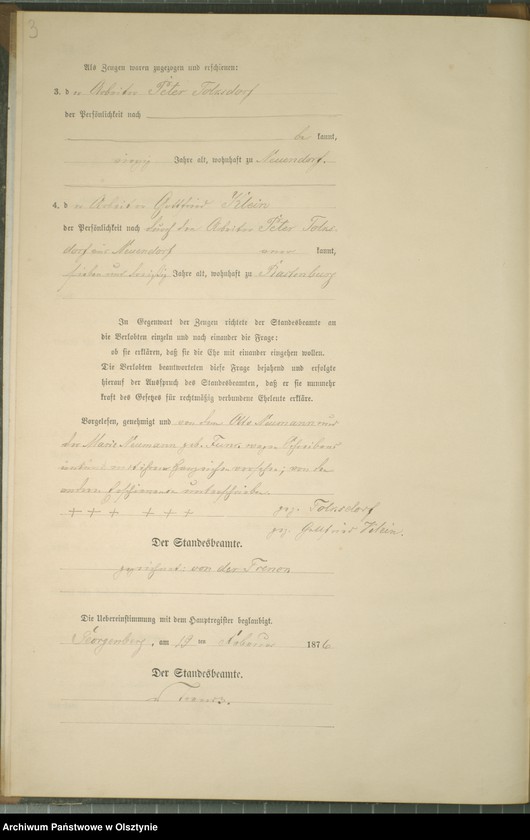 3
Als Zeugen waren zugezogen und erschienen:
3. der Arbeiter Peter Tolnsdorf
der Persönlichkeit nach
be kannt,
vierzig Jahre alt, wohnhaft zu Neuendorf.
4. der Arbeiter Gottfried Klein
der Persönlichkeit nach durch den Arbeiter Peter Tolns-
dorf aus Neuendorf aner kannt,
sieben und dreißig Jahre alt, wohnhaft zu Rastenburg
In Gegenwart der Zeugen richtete der Standesbeamte an
die Verlobten einzeln und nach einander die Frage:
ob sie erklären, daß sie die Ehe mit einander eingehen wollen.
Die Verlobten beantworteten diese Frage bejahend und erfolgte
hierauf der Ausspruch des Standesbeamten, daß er sie nunmehr
kraft des Gesetzes für rechtmäßig verbundene Eheleute erkläre.
Vorgelesen, genehmigt und von dem Otto Neumann und
der Marie Neumann geb. wegen Schreibens
unkunde mit ihren Handzeichen versehen, von den
anderen Erschienenen unterschrieben.
+ + + + + + gez. Tolnsdorf
gez. Gottfried Klein.
Der Standesbeamte.
gezeichnet: von der Trenck
Die Uebereinstimmung mit dem Hauptregister beglaubigt.
am 19 ten Februar 1876
Der Standesbeamte.
v Trenck.
Archiwum Państwowe w Olsztynie